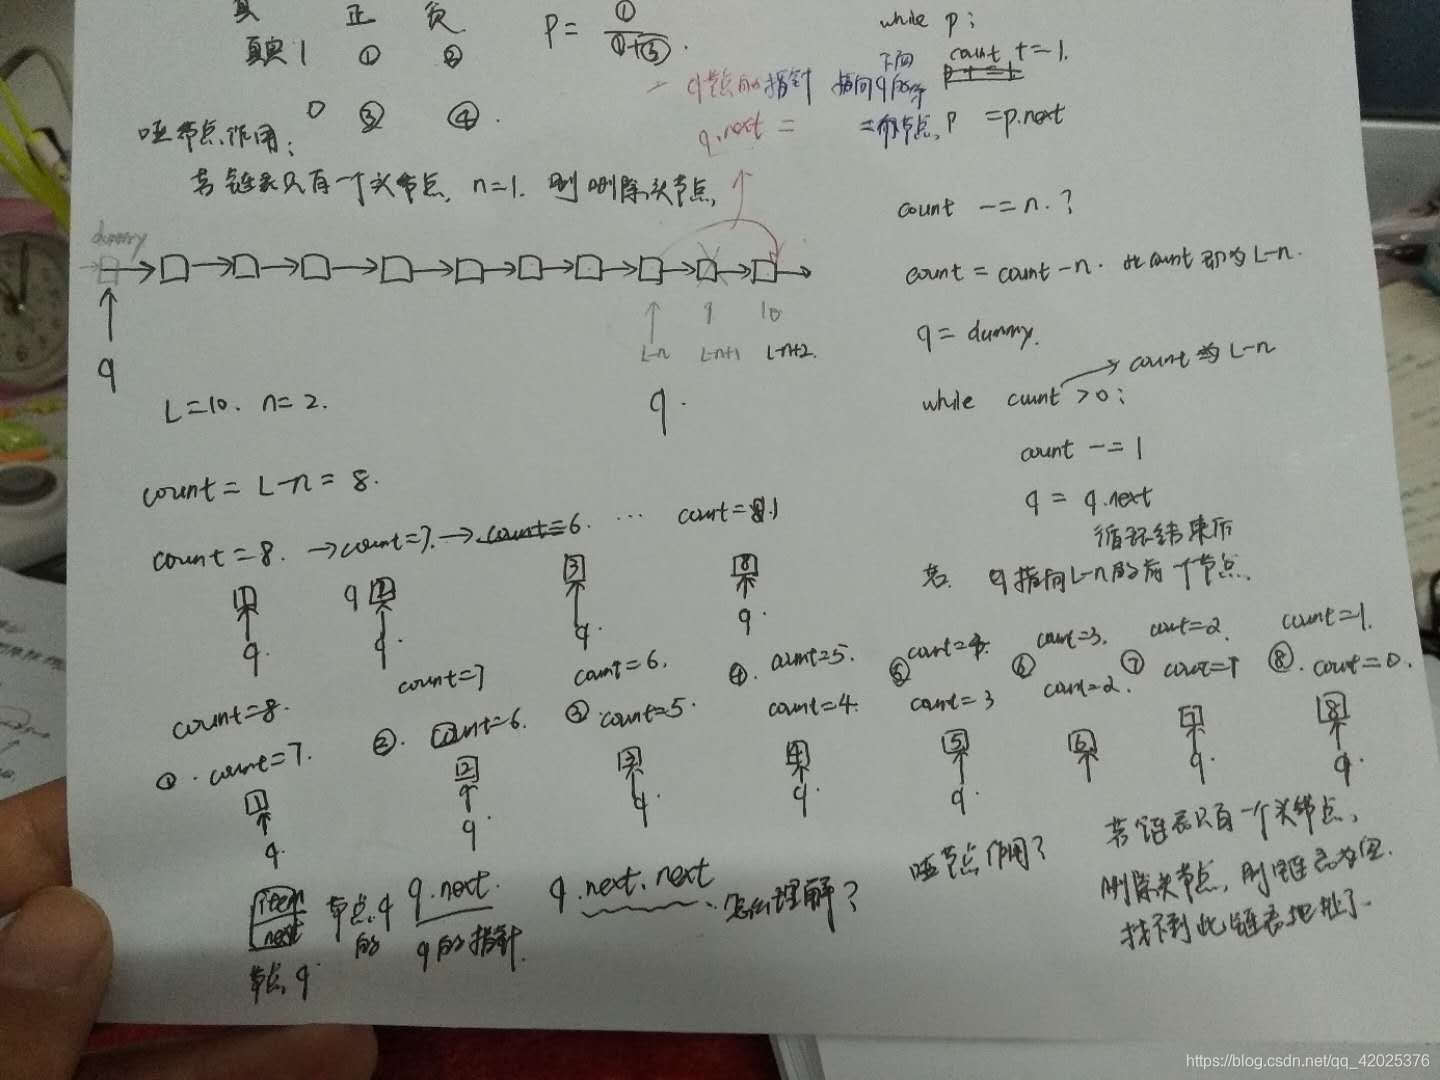 真 正 负
真实 1 ① ②
0 ③ ④.
P = ① / ①+③.
while p:
count += 1.
p = p.next
q节点的指针 指向q的下下个节点,
q.next =
哑节点作用:
若链表只有一个头节点, n=1. 则删除头节点,
count -= n. ?
dummy
count = count - n. 此count即为L-n.
9 10
L-n L-n+1 L-n+2.
q
q.
q = dummy.
L=10. n=2.
while count >0: count为L-n
count -= 1
q = q.next
count = L-n = 8.
循环结束后
若. q指向L-n的前一个节点.
count=8. →count=7. →count=6. ... count=1
1 2 3 8
q. q q. q. q.
count=8. count=7 count=6. ④. count=5. ⑤ count=4. ⑥ count=3. ⑦ count=2. ⑧. count=1.
① . count=7. ②. count=6. ③ .count=5. count=4. count=3 count=2. count=1 count=0.
1 2 3 4 5 6 7 8
q. q. q. q. q. q. q.
item
next
节点q.
节点q的
q.next.
q的指针.
q.next.next. 怎么理解?
哑节点作用?
若链表只有一个头节点,
删除头节点, 则链表为空.
找不到此链表地址了.
https://blog.csdn.net/qq_42025376